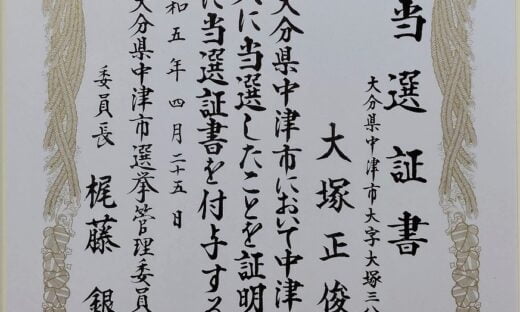 当選証書
大分県中津市大字大塚三八
大塚正俊
大分県中津市において中津
に当選したことを証明
に当選証書を付与する
和五年四月二十五日
大分県中津市選挙管理委員
委員長 梶藤 銀